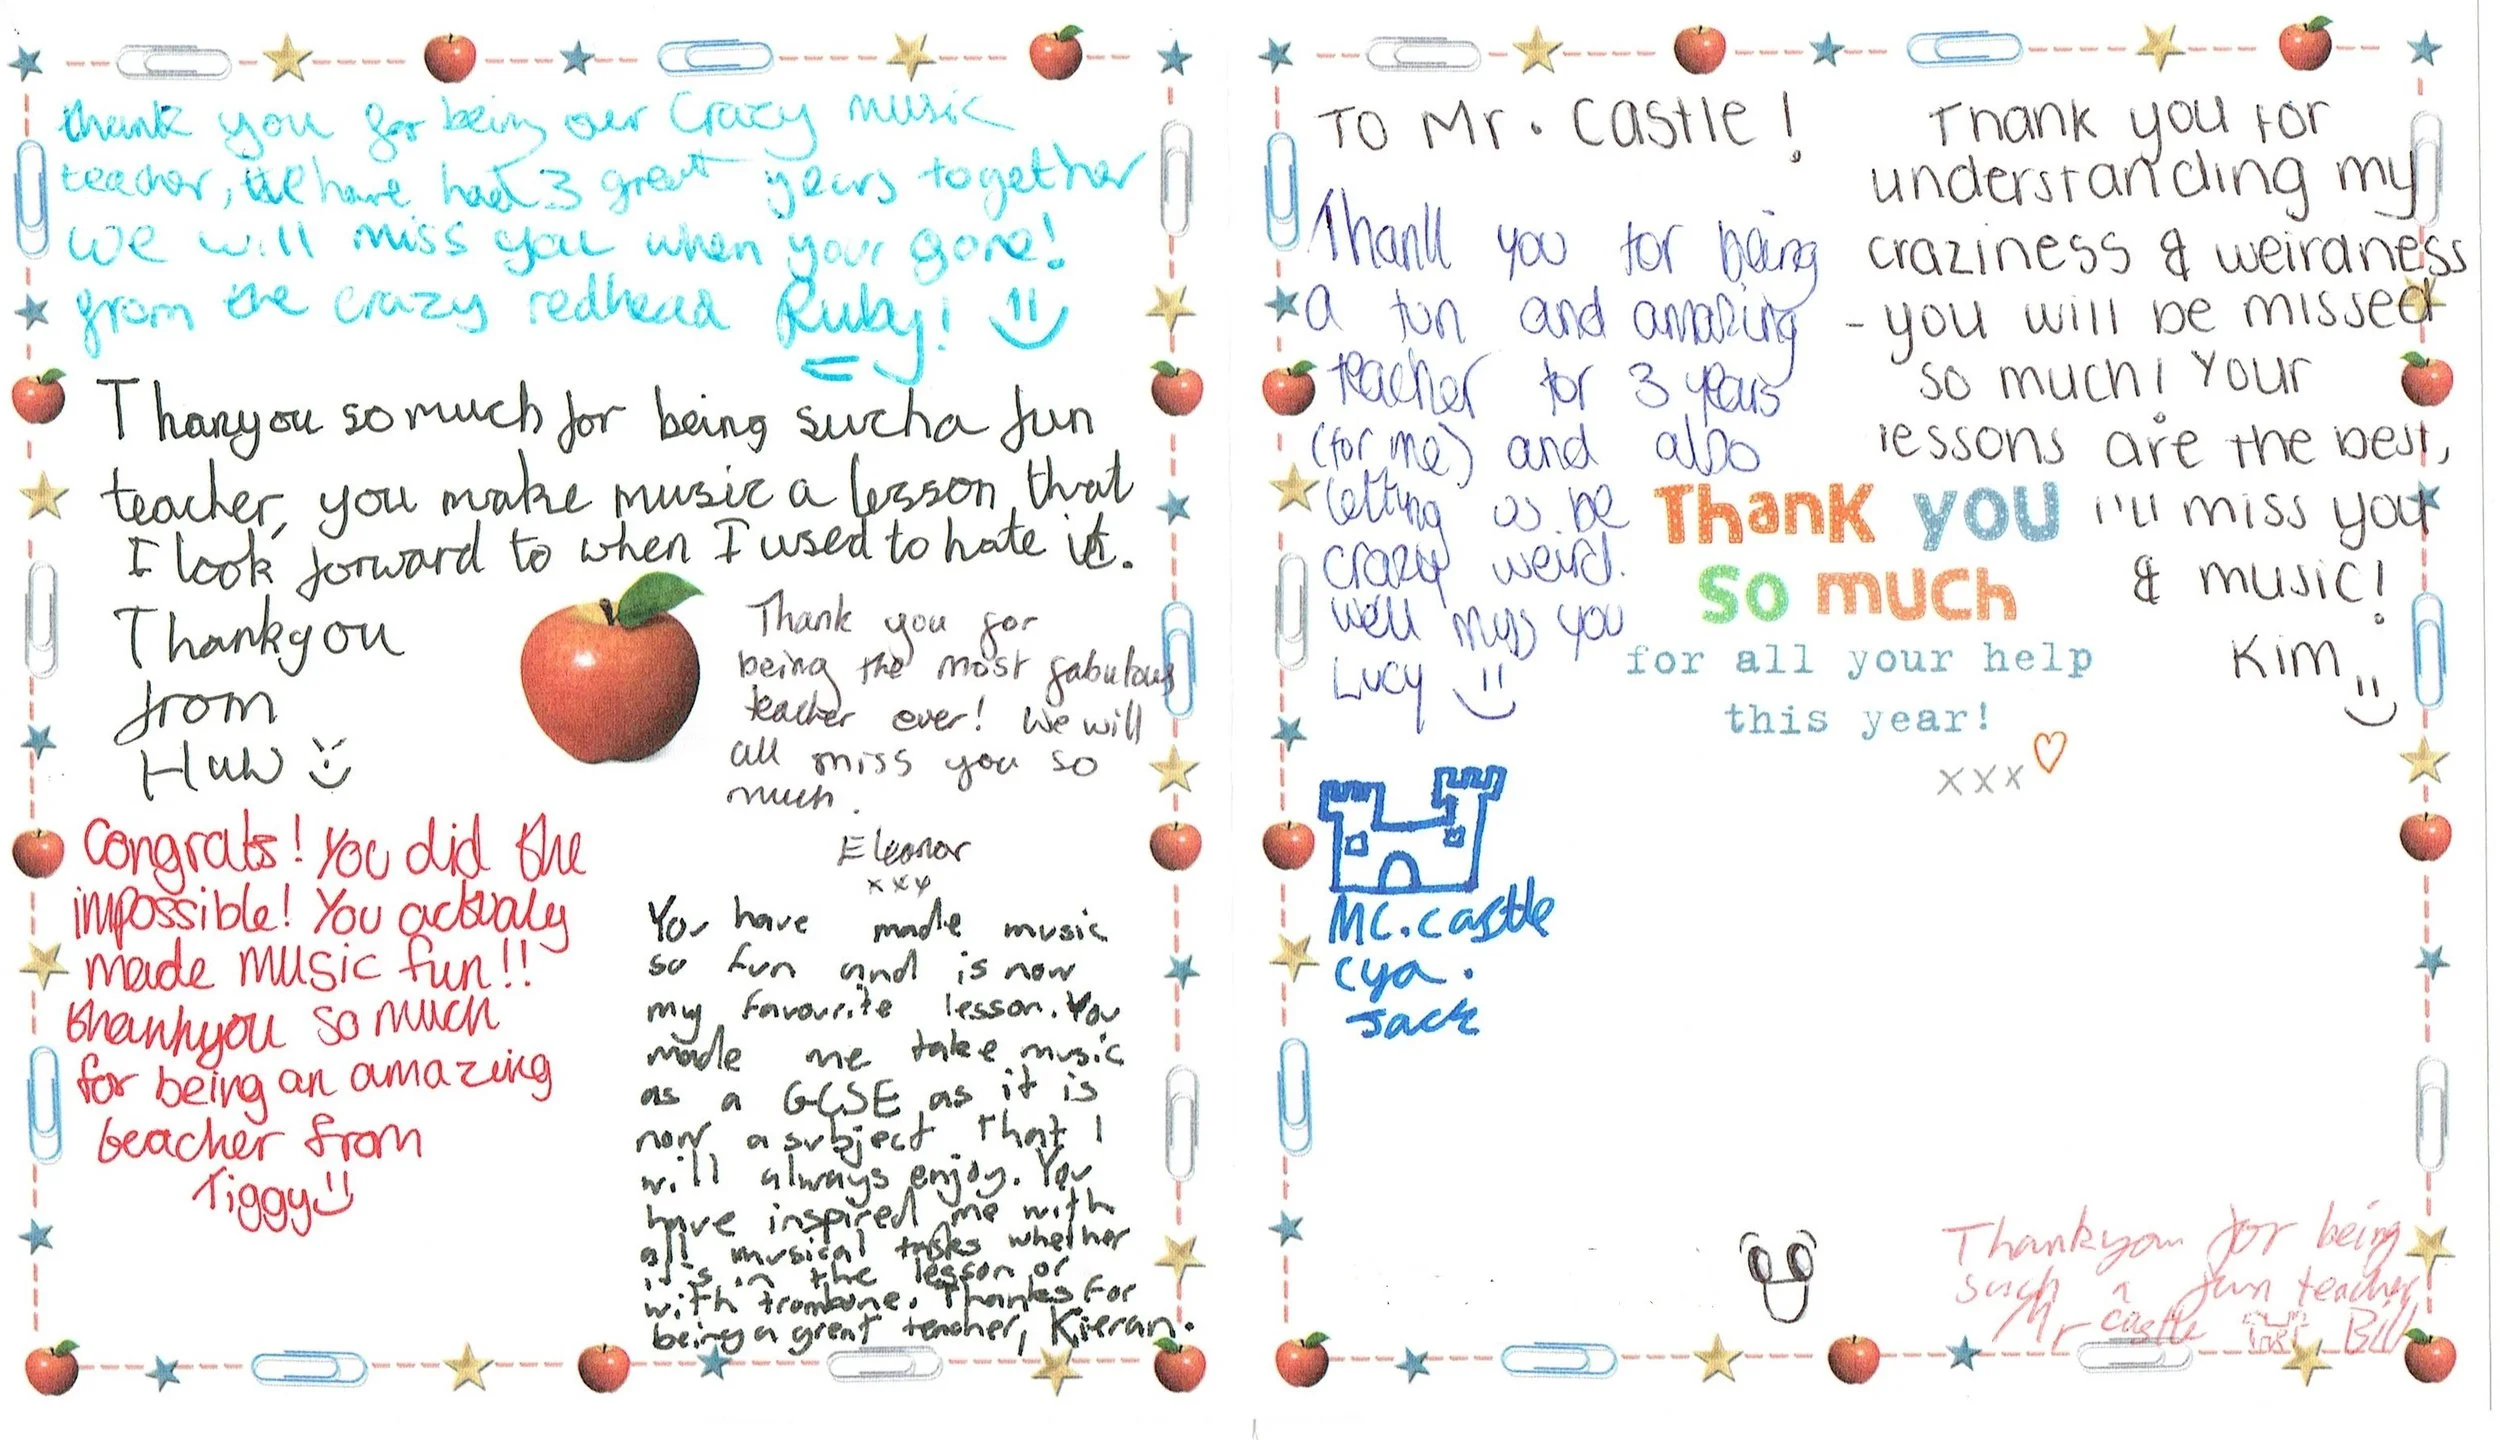 thank you for being our Crazy music
teacher, We have had 3 great years together
we will miss you when your gone!
from the crazy redhead Ruby!
Thanyou so much for being sucha fun
teacher, you make music a lesson that
I look forward to when I used to hate it.
Thankyou
from
Huw
Thank you for
being the most fabulous
teacher ever! We will
all miss you so
much.
Eleanor
xxx
Congrats! You did the
impossible! You actualy
made music fun!!
thankyou so much
for being an amazing
teacher from
Tiggy
You have made music
so fun and is now
my favourite lesson. You
made me take music
as a GCSE as it is
now a subject that I
will always enjoy. You
have inspired me with
all musical tasks whether
it's in the lesson or
with trombone. Thanks for
being a great teacher, Kieran.
To Mr. Castle!
Thank you for being
a fun and amazing
teacher for 3 years
(for me) and also
letting us be
crazy weird.
we'll miss you
Lucy
Thank you for
understanding my
craziness & weirdness
- you will be missed
so much! Your
lessons are the best,
i'll miss you
& music!
Kim
Thank you
so much
for all your help
this year!
xxx
MC.castle
cya.
Jack
Thankyou for being
such a fun teacher
Mr castle Bill